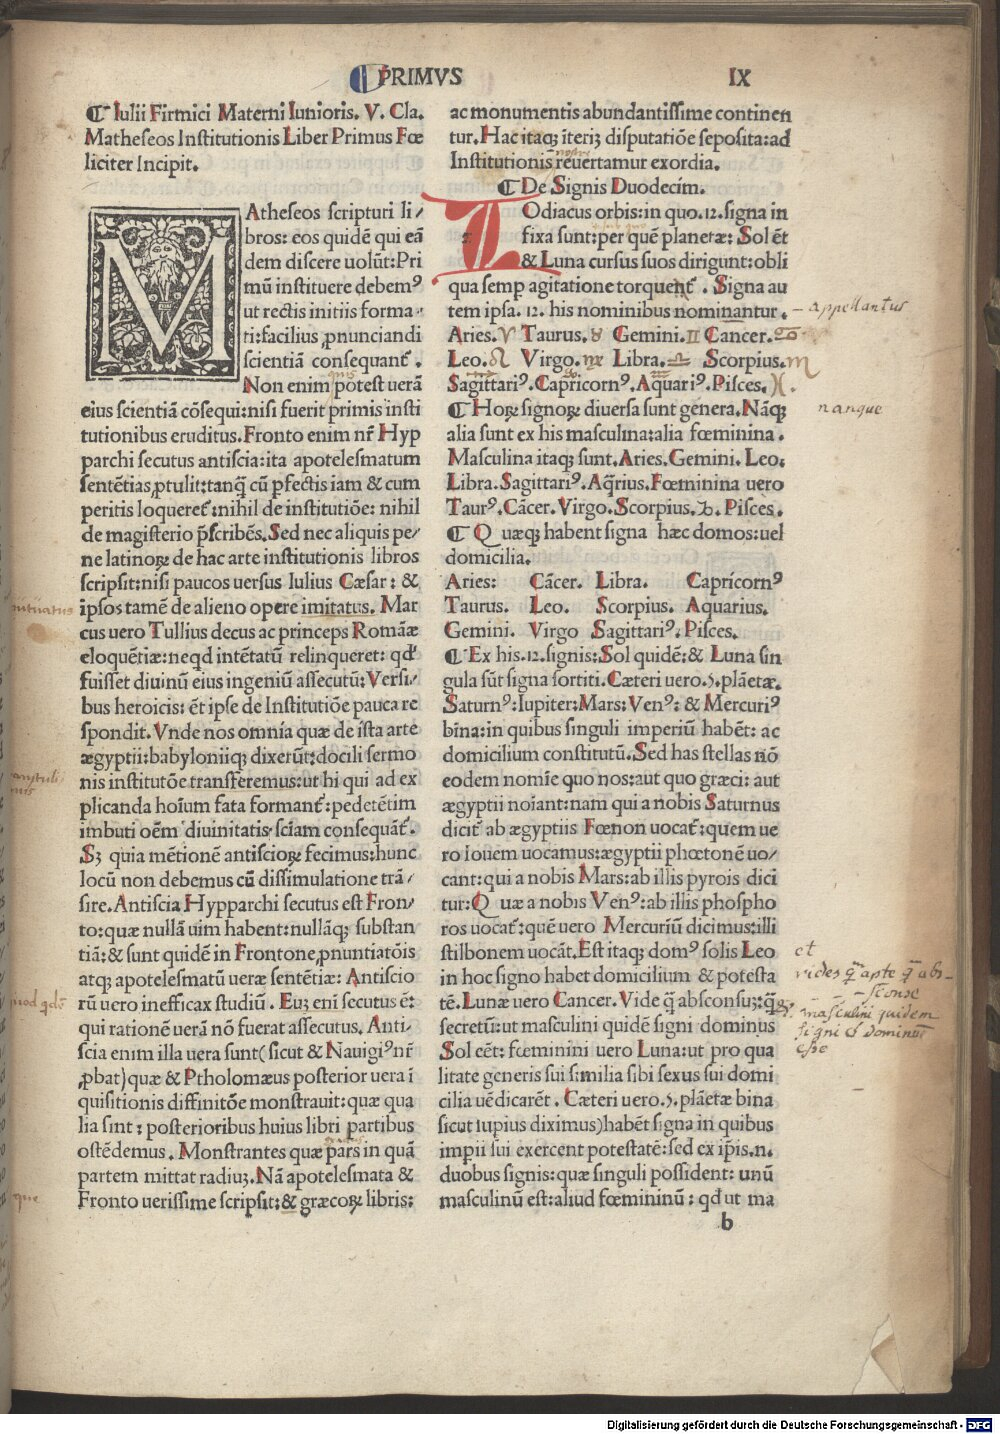 PRIMVS
IX
¶ Iulii Firmici Materni Iunioris. V. Cla.
Matheseos Institutionis Liber Primus Fœ
liciter Incipit.
MAtheseos scripturi li/
bros: eos quidē qui eā
dem discere uolūt: Pri
mū instituere debemꝰ
ut rectis initiis forma
ti: facilius ꝓnunciandi
scientiā consequant᷑.
Non enim potest uerā
eius scientiā cōsequi: nisi fuerit primis insti
tutionibus eruditus. Fronto enim nr̄ Hyp
parchi secutus antiscia: ita apotelesmatum
sentētias ꝓtulit: tanq̄ cū ꝑfectis iam & cum
peritis loqueret᷑: nihil de institutiōe: nihil
de magisterio p̄scribēs. Sed nec aliquis pe/
ne latinoꝝ de hac arte institutionis libros
scripsit: nisi paucos uersus Iulius Cæsar: &
ipsos tamē de alieno opere imitatus. Mar
cus uero Tullius decus ac princeps Romāæ
eloquētiæ: neqd intētatū relinqueret: qd'
fuisset diuinū eius ingeniū assecutū: Versi/
bus heroicis: ēt ipse de Institutiōe pauca re
spondit. Vnde nos omnia quæ de ista arte
ægyptii: babyloniiqꝫ dixerūt: docili sermo
nis institutōe transferemus: ut hi qui ad ex
plicanda hoīum fata formant᷑: pedetētim
imbuti oēm diuinitatis sciam consequāt᷑.
Sꝫ quia mētionē antiscioꝝ fecimus: hunc
locū non debemus cū dissimulatione trā/
sire. Antiscia Hypparchi secutus est Fron/
to: quæ nullā uim habent: nullāqꝫ substan
tiā: & sunt quidē in Frontone ꝓnuntiatōis
atqꝫ apotelesmatū ueræ sentētiæ: Antiscio
rū uero inefficax studiū. Euꝫ eni secutus ē:
qui rationē uerā nō fuerat assecutus. Anti/
scia enim illa uera sunt (sicut & Nauigiꝰ nr̄
ꝓbat) quæ & Ptholomæus posterior uera ī
quisitionis diffinitōe monstrauit: quæ qua
lia sint: posterioribus huius libri partibus
ostēdemus. Monstrantes quæ pars in quā
partem mittat radiuꝫ. Nā apotelesmata &
Fronto uerissime scripsit: & græcoꝝ libris:
ac monumentis abundantissime continen
tur. Hac itaqꝫ īteriꝫ disputatiōe seposita: ad
nostri
Institutionis reuertamur exordia.
¶ De Signis Duodecim.
ZOdiacus orbis: in quo .12. signa in
fixa sunt: per quē planetæ: Sol ēt
& Luna cursus suos dirigunt: obli
qua semꝑ agitatione torquent᷑. Signa au
tem ipsa .12. his nominibus nominantur.
Aries. ♈ Taurus. ♉ Gemini. ♊ Cancer. ♋
Leo. ♌ Virgo. ♍ Libra. ♎ Scorpius. ♏
Sagittariꝰ. Capricornꝰ. Aquariꝰ. Pisces. ♓.
¶ Hoꝝ signoꝝ diuersa sunt genera. Nāqꝫ
alia sunt ex his masculina: alia fœminina.
Masculina itaqꝫ sunt. Aries. Gemini. Leo.
Libra. Sagittariꝰ. Aq̄rius. Fœminina uero
Taurꝰ. Cācer. Virgo. Scorpius. ♑. Pisces.
¶ Quæqꝫ habent signa hæc domos: uel
domicilia.
Aries: Cācer. Libra. Capricornꝰ
Taurus. Leo. Scorpius. Aquarius.
Gemini. Virgo Sagittariꝰ. Pisces.
¶ Ex his .12. signis: Sol quidē: & Luna sin
gula sūt signa sortiti. Cæteri uero .5. plāetæ.
Saturnꝰ: Iupiter: Mars: Venꝰ: & Mercuriꝰ
bīna: in quibus singuli imperiū habēt: ac
domicilium constitutū. Sed has stellas nō
eodem nomīe quo nos: aut quo græci: aut
ægyptii noiant: nam qui a nobis Saturnus
dicit᷑ ab ægyptiis Fœnon uocat᷑: quem ue
ro Iouem uocamus: ægyptii phœtonē uo/
cant: qui a nobis Mars: ab illis pyrois dici
tur: Quæ a nobis Venꝰ: ab illis phospho
ros uocat᷑: quē uero Mercuriū dicimus: illi
stilbonem uocāt. Est itaqꝫ domꝰ solis Leo
in hoc signo habet domicilium & potesta
tē. Lunæ uero Cancer. Vide q̄ absconsuꝫ: q̄
secretū: ut masculini quidē signi dominus
Sol eēt: fœminini uero Luna: ut pro qua
litate generis sui similia sibi sexus sui domi
cilia uēdicarēt. Cæteri uero .5. plāetæ bina
sicut supius diximus) habēt signa in quibus
impii sui exercent potestatē: sed ex ip̄is .n.
duobus signis: quæ singuli possident: unū
masculinū est: aliud fœmininū: qd ut ma
b
appellantur
nanque
et
vides q̄ apte q̄ abs-
sconse
masculini quidem
signi & dominū
esse
que
Digitalisierung gefördert durch die Deutsche Forschungsgemeinschaft - DFG